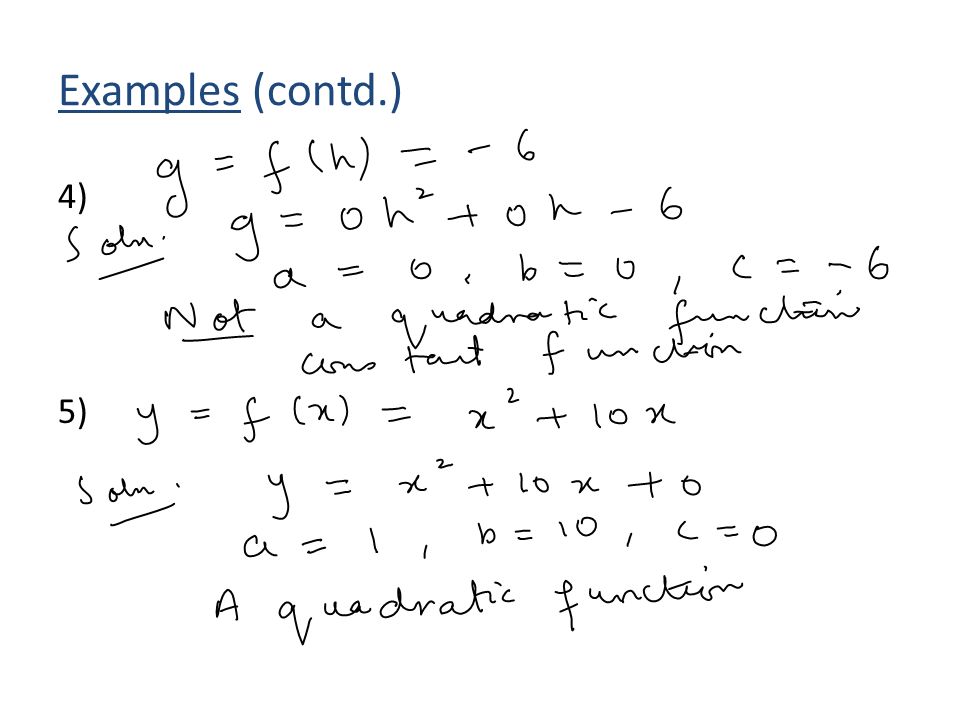 Examples (contd.)
4) g = f(h) = -6
Soln. g = 0h² + 0h - 6
a = 0, b = 0, c = -6
Not a quadratic function
constant function
5) y = f(x) = x² + 10x
Soln. y = x² + 10x + 0
a = 1, b = 10, c = 0
A quadratic function